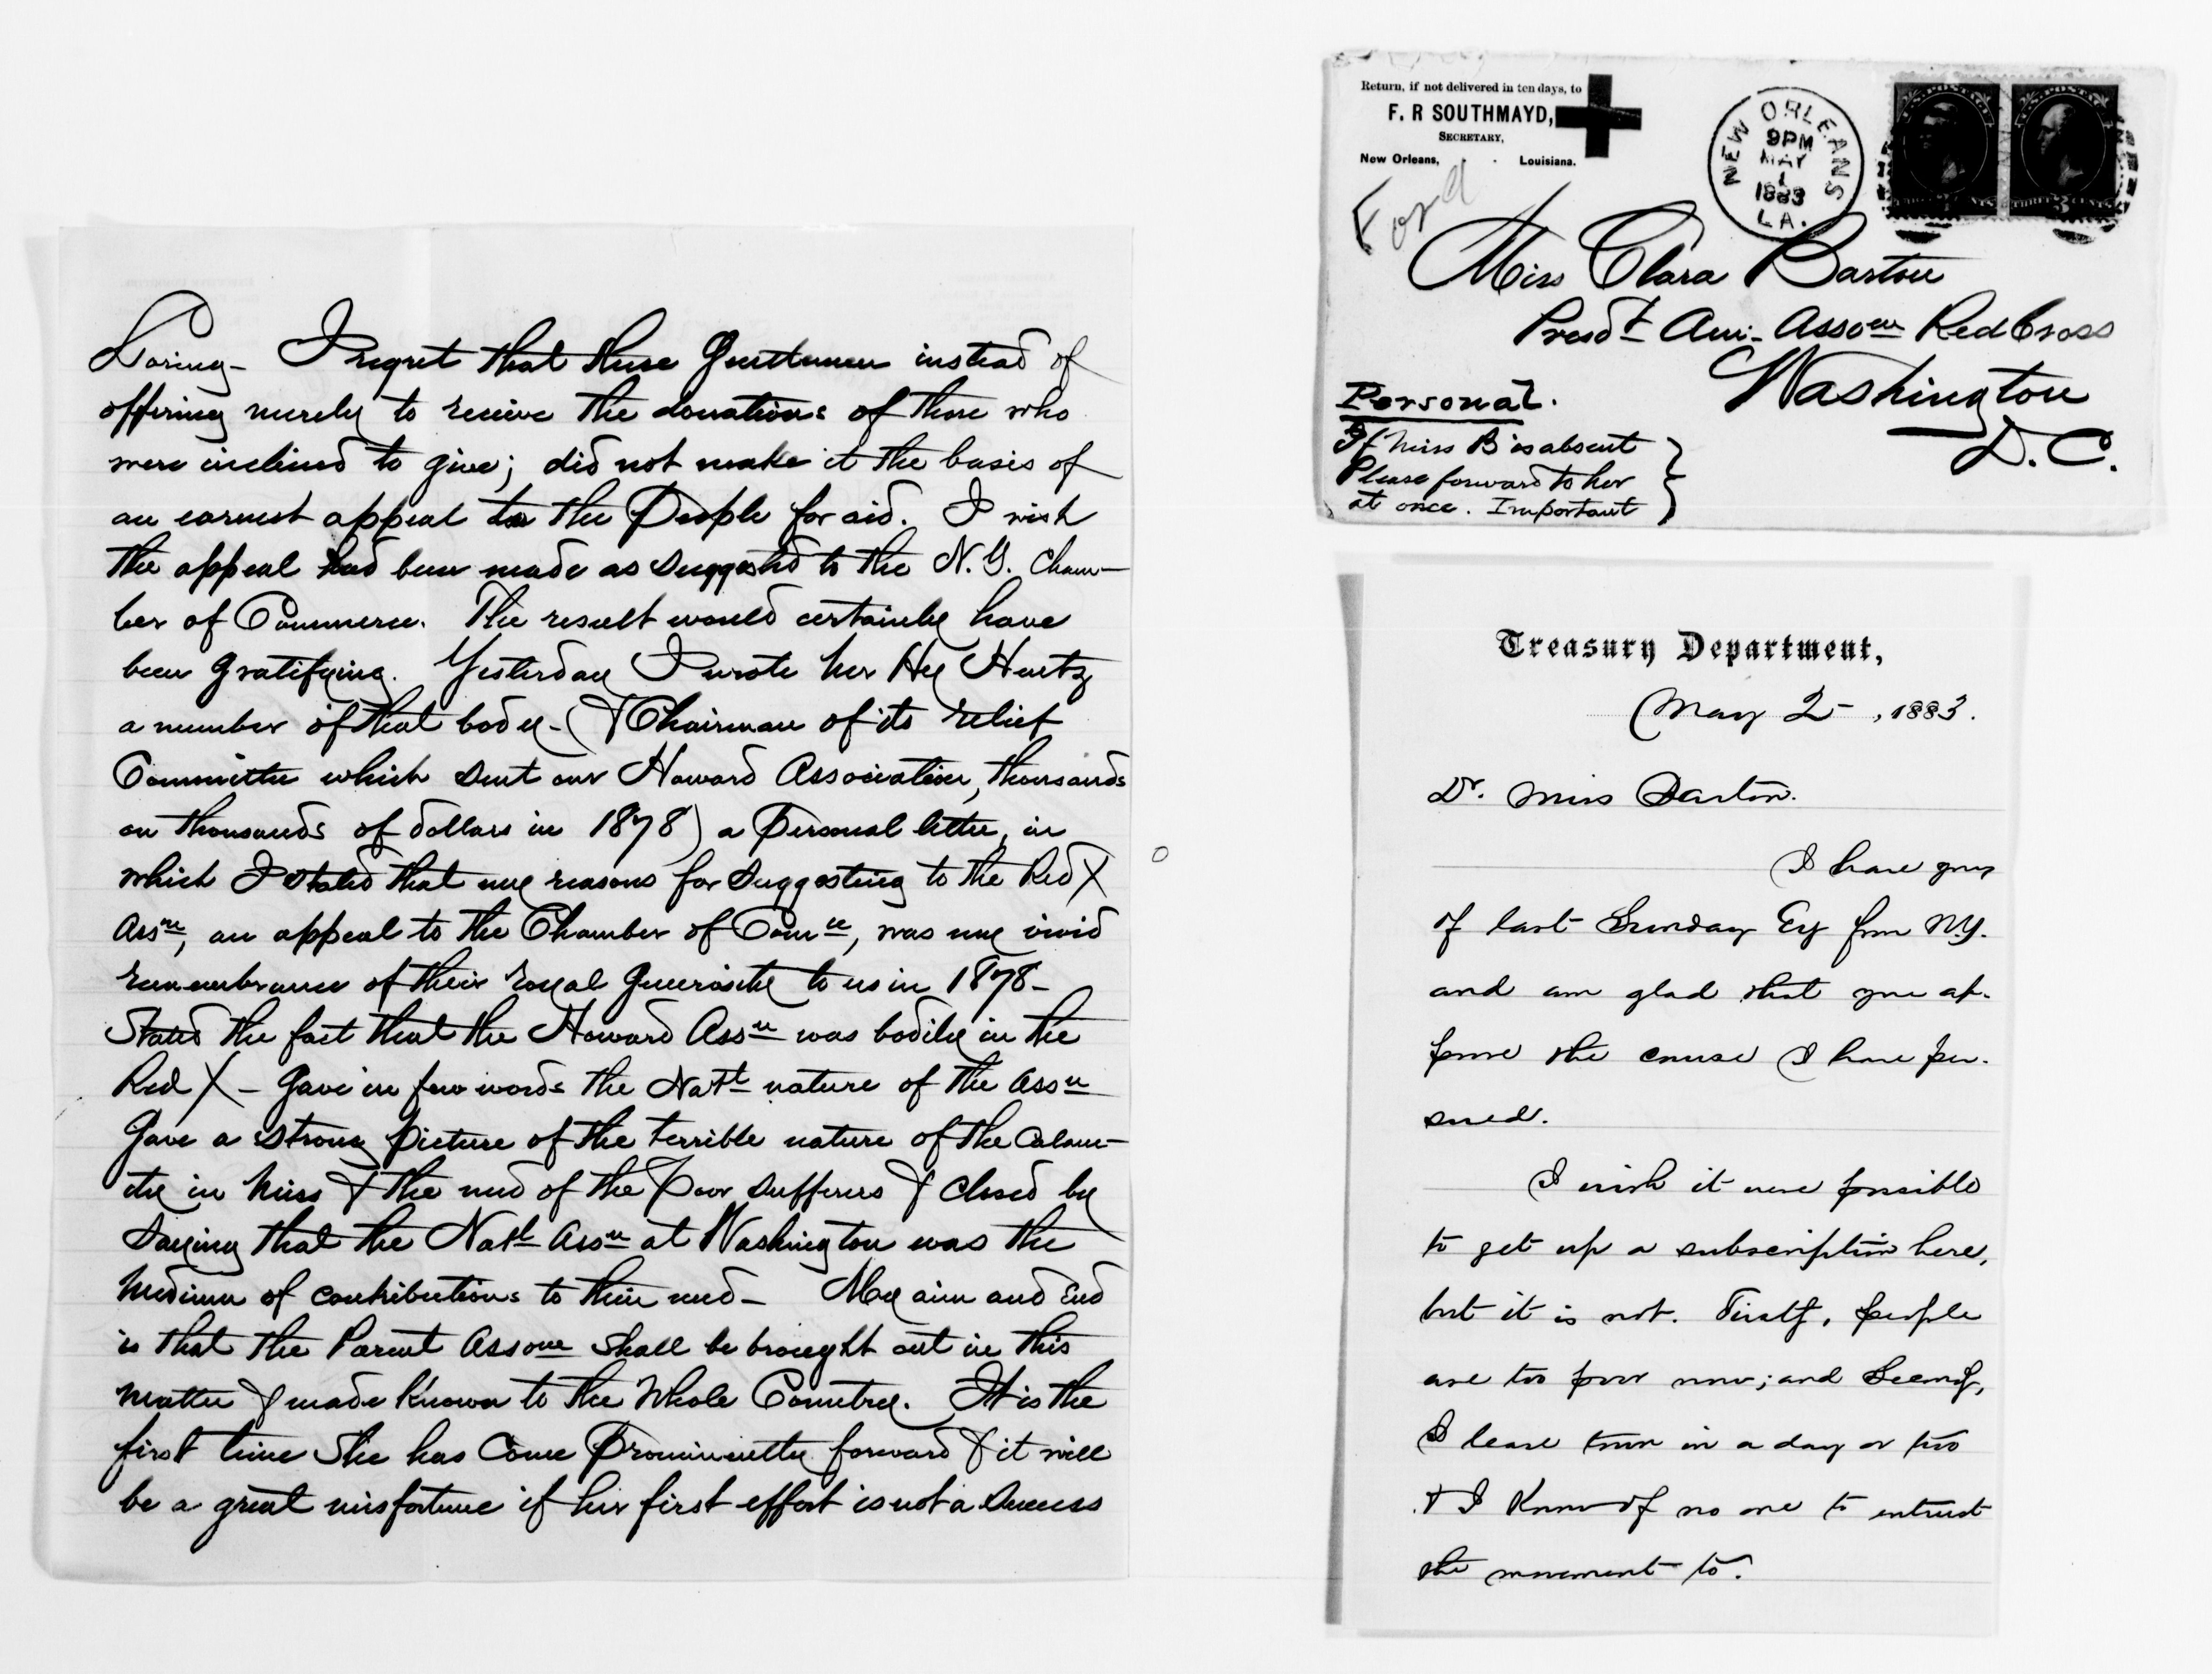 Loring - I regret that these Gentlemen instead of
offering merely to receive the donations of those who
were inclined to give; did not make it the basis of
an earnest appeal to the People for aid. I wish
the appeal had been made as suggested to the N.Y. Cham-
ber of Commerce. The result would certainly have
been gratifying. Yesterday I wrote Hy Hentz
a member of that body - (& Chairman of its relief
Committee which sent our Howard Association, thousands
on thousands of dollars in 1878) a Personal letter, in
which I stated that my reasons for suggesting to the Red X
Assn, an appeal to the Chamber of Comce, was my vivid
remembrance of their royal Generosity to us in 1878 -
Stated the fact that the Howard Assn was bodily in the
Red X - Gave in few words the Natl nature of the Assn
Gave a strong picture of the terrible nature of the Calam-
ity in Miss & the need of the Poor sufferers & closed by
saying that the Natl Assn at Washington was the
Medium of contributions to their need - My aim and End
is that the Parent Asson shall be brought out in this
matter & made Known to the Whole Country. It is the
first time She has Come Prominently forward & it will
be a great misfortune if her first effort is not a Success
Return, if not delivered in ten days, to
F. R SOUTHMAYD,
SECRETARY,
New Orleans, Louisiana.
NEW ORLEANS
9PM
MAY
1
1883
LA.
Ford
Miss Clara Barton
Presdt Am. Asson Red Cross
Washington
D.C.
Personal.
If Miss B is absent
Please forward to her
at once. Important
Treasury Department,
May 2 - , 1883.
Dr. Miss Barton.
I have yours
of last Sunday Ev from N.Y.
and am glad that you ap-
prove the course I have pur-
sued.
I wish it were possible
to get up a subscription here,
but it is not. Firstly, people
are too poor now; and Secondly,
I leave town in a day or two
& I Know of no one to entrust
the movement to.